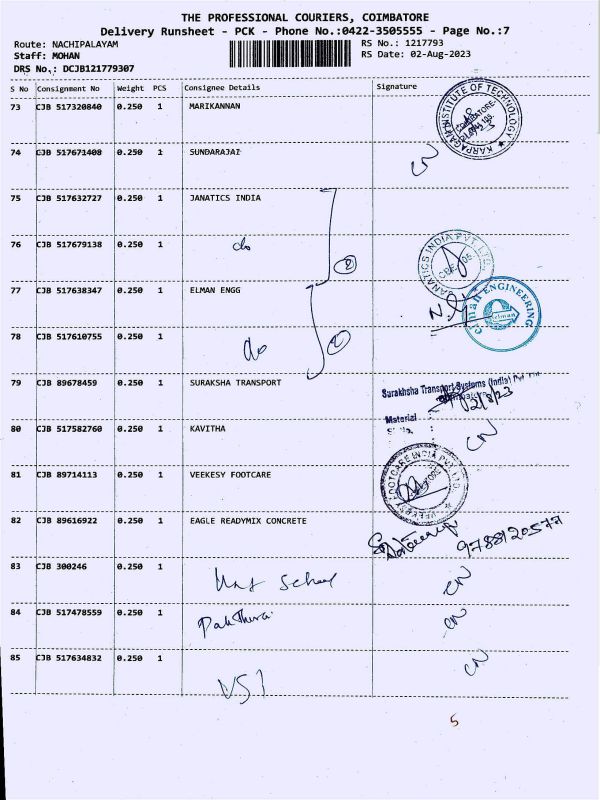 THE PROFESSIONAL COURIERS, COIMBATORE
Delivery Runsheet - PCK - Phone No.:0422-3505555 - Page No.:7
Route: NACHIPALAYAM RS No.: 1217793
Staff: MOHAN RS Date: 02-Aug-2023
DRS No.: DCJB121779307
S No Consignment No Weight PCS Consignee Details Signature
73 CJB 517320840 0.250 1 MARIKANNAN
KARPAGAM INSTITUTE OF TECHNOLOGY
COIMBATORE
74 CJB 517671408 0.250 1 SUNDARAJAI
CN
75 CJB 517632727 0.250 1 JANATICS INDIA
76 CJB 517679138 0.250 1 do
2
JANATICS INDIA PVT. LTD.
77 CJB 517638347 0.250 1 ELMAN ENGG
elman ENGINEERING
elman
78 CJB 517610755 0.250 1 do
79 CJB 89678459 0.250 1 SURAKSHA TRANSPORT
Surakhsha Transport Systems (India) Pvt
2/8/23
Material :
80 CJB 517582760 0.250 1 KAVITHA
CN
81 CJB 89714113 0.250 1 VEEKESY FOOTCARE
VEEKESY FOOTCARE INDIA PVT. LTD.
82 CJB 89616922 0.250 1 EAGLE READYMIX CONCRETE
9788120577
83 CJB 300246 0.250 1 School CN
84 CJB 517478559 0.250 1 CN
85 CJB 517634832 0.250 1 VSI CN
5